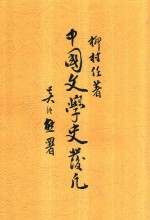 柳村任著
中國文學史發凡
署